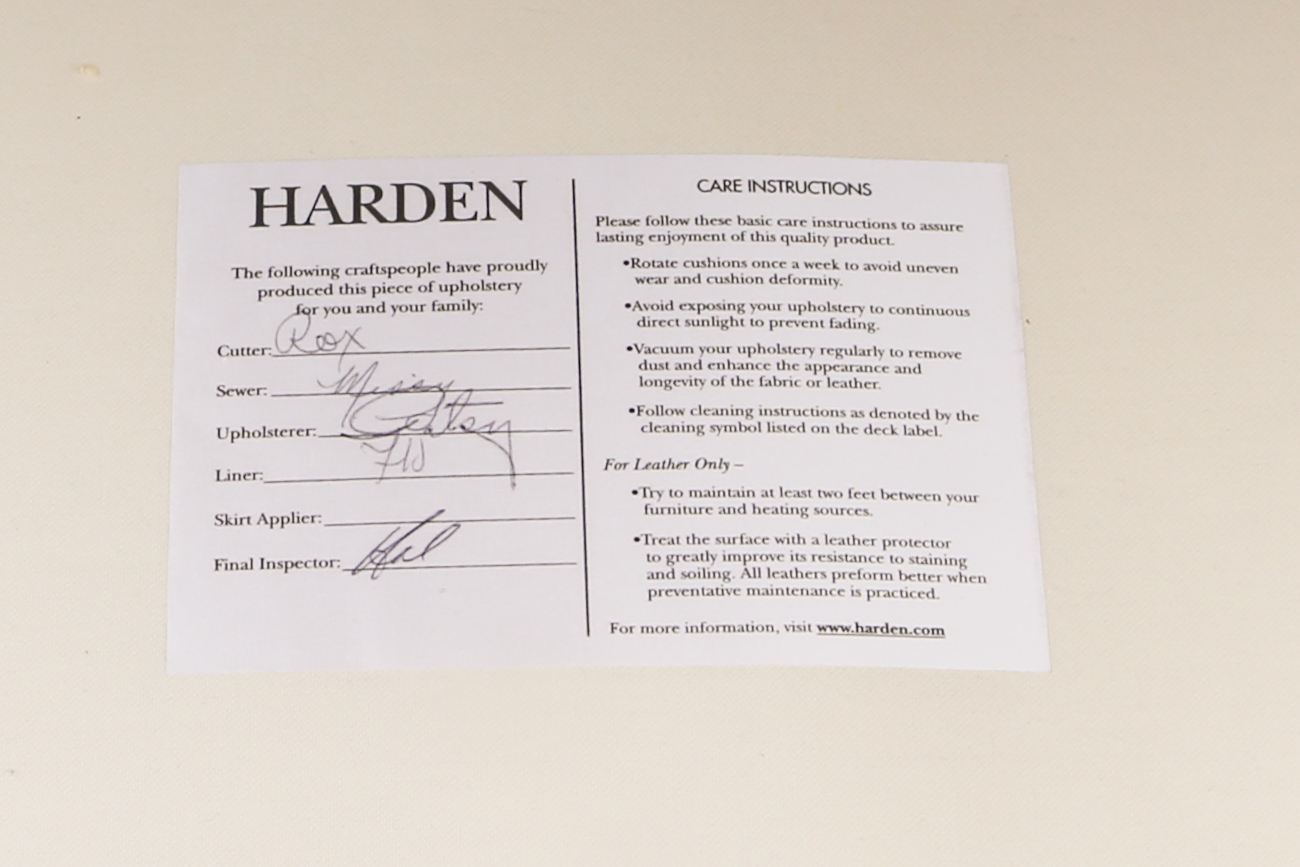 HARDEN
The following craftspeople have proudly
produced this piece of upholstery
for you and your family:
Cutter: Rox
Sewer: Missy
Upholsterer:
Liner:
Skirt Applier:
Final Inspector: Hal
CARE INSTRUCTIONS
Please follow these basic care instructions to assure
lasting enjoyment of this quality product.
•Rotate cushions once a week to avoid uneven
wear and cushion deformity.
•Avoid exposing your upholstery to continuous
direct sunlight to prevent fading.
•Vacuum your upholstery regularly to remove
dust and enhance the appearance and
longevity of the fabric or leather.
•Follow cleaning instructions as denoted by the
cleaning symbol listed on the deck label.
For Leather Only –
•Try to maintain at least two feet between your
furniture and heating sources.
•Treat the surface with a leather protector
to greatly improve its resistance to staining
and soiling. All leathers preform better when
preventative maintenance is practiced.
For more information, visit www.harden.com